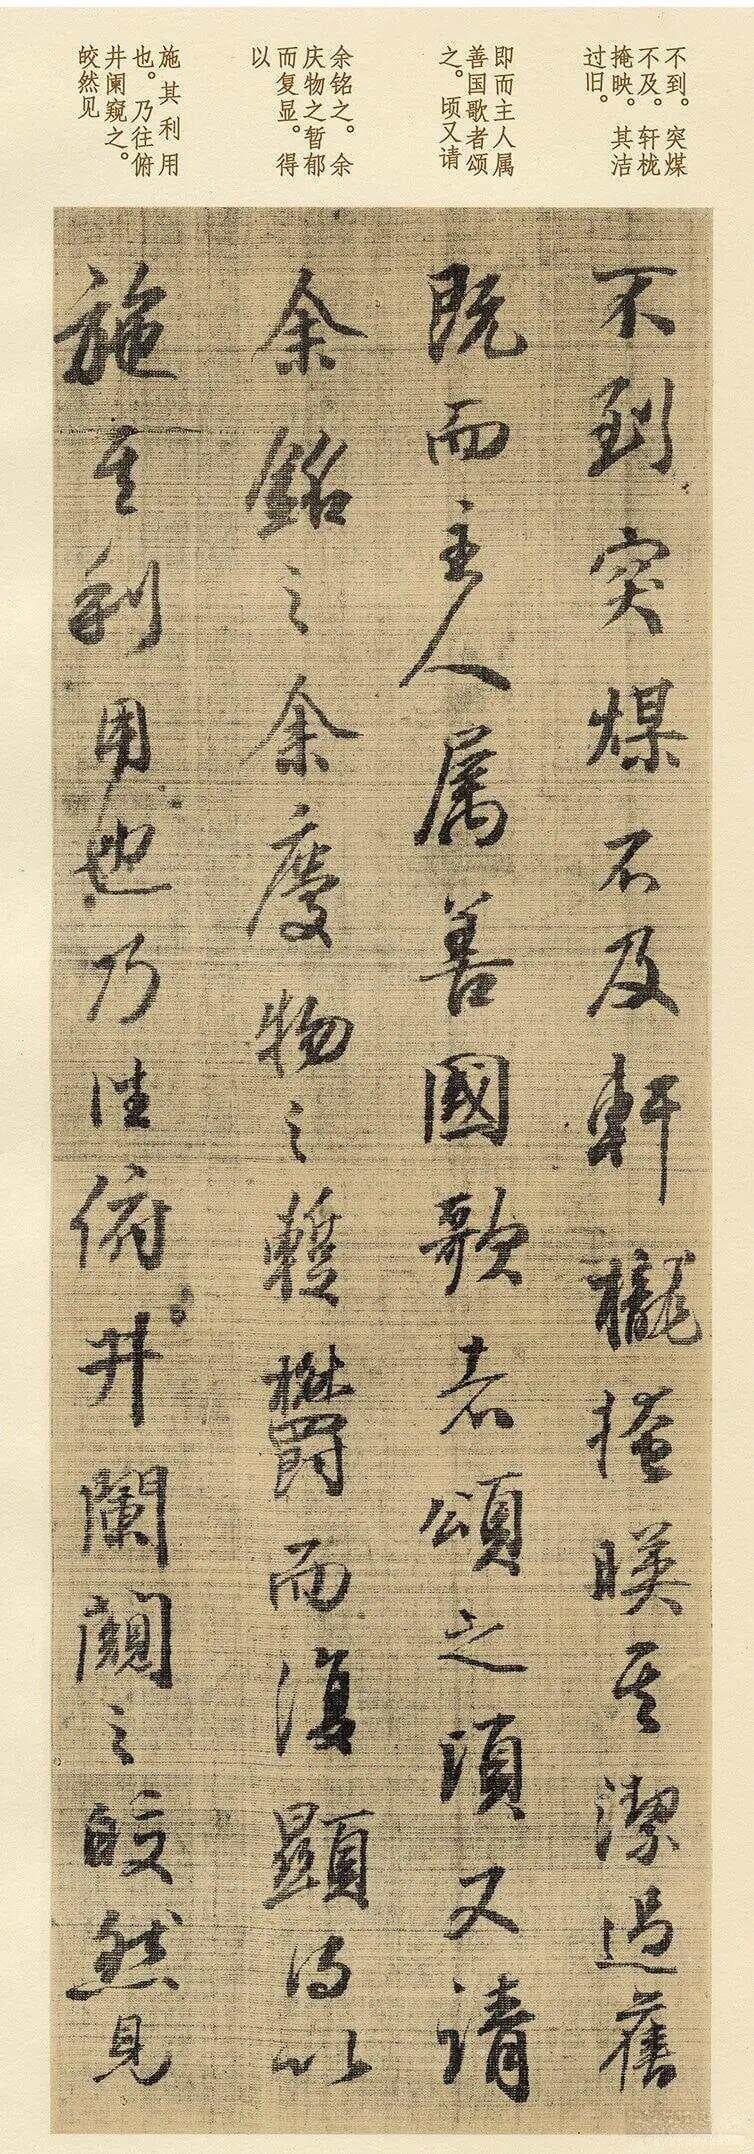 不到。突煤
不及。轩栊
掩映。其洁
过旧。
即而主人属
善国歌者颂
之。顷又请
余铭之。余
庆物之暂郁
而复显。得
以
施其利用
也。乃往俯
井阑窥之。
皎然见
不到突煤不及軒櫳掩暎其潔過舊
既而主人属善國歌者頌之頃又請
余銘之余慶物之蹔欝而復顯得以
施其利用也乃往俯井闌窺之皎然見